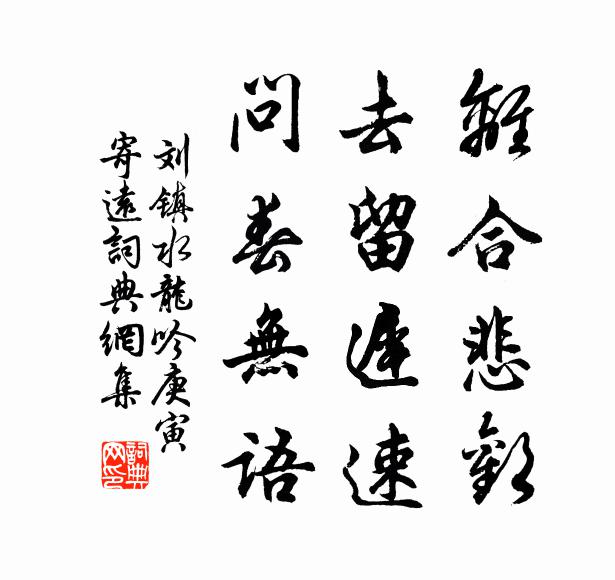 離合悲歡
去留遲速
問春無語
刘鎮水龍吟庚寅
寄遠詞典網集
詞典网印